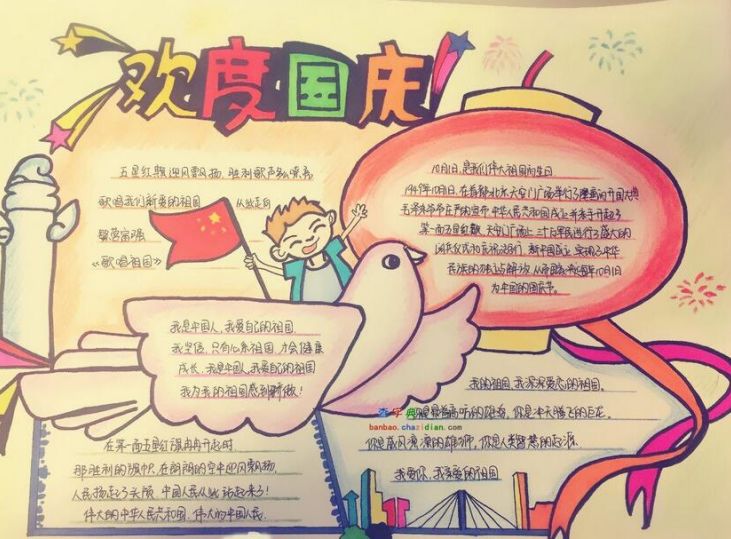 欢度国庆
五星红旗迎风飘扬，胜利歌声多么响亮
歌唱我们亲爱的祖国 从此走向
繁荣富强
《歌唱祖国》
10月1日，是我们伟大祖国的生日
1949年10月1日，在首都北京天安门广场举行了隆重的开国大典
毛泽东 在庄严的宣布 中华人民共和国成立并亲手升起了
第一面五星红旗，天安门广场上三十万军民进行了盛大的
阅兵仪式和 新中国成立 实现了中华
民族的独立与解放 10月1日
为中国的国庆节。
我是中国人，我爱自己的祖国
我坚信，只有心系祖国，才会健康
成长，我是中国人，我爱自己的祖国
我为我的祖国感到骄傲！
在第一面五星红旗冉冉升起时
那胜利的旗帜，在朗朗的空中迎风飘扬
人民扬起了头颅，中国人民从此站起来了！
伟大的中华人民共和国，伟大的中国人民
我的祖国，我深深爱恋的祖国。
你是 高昂的雄鸡，你是冲天腾飞的巨龙。
你是威风凛凛的雄狮，你是人类智慧的起源
我爱你，我亲爱的祖国
查字典
banbao.chazidian.com